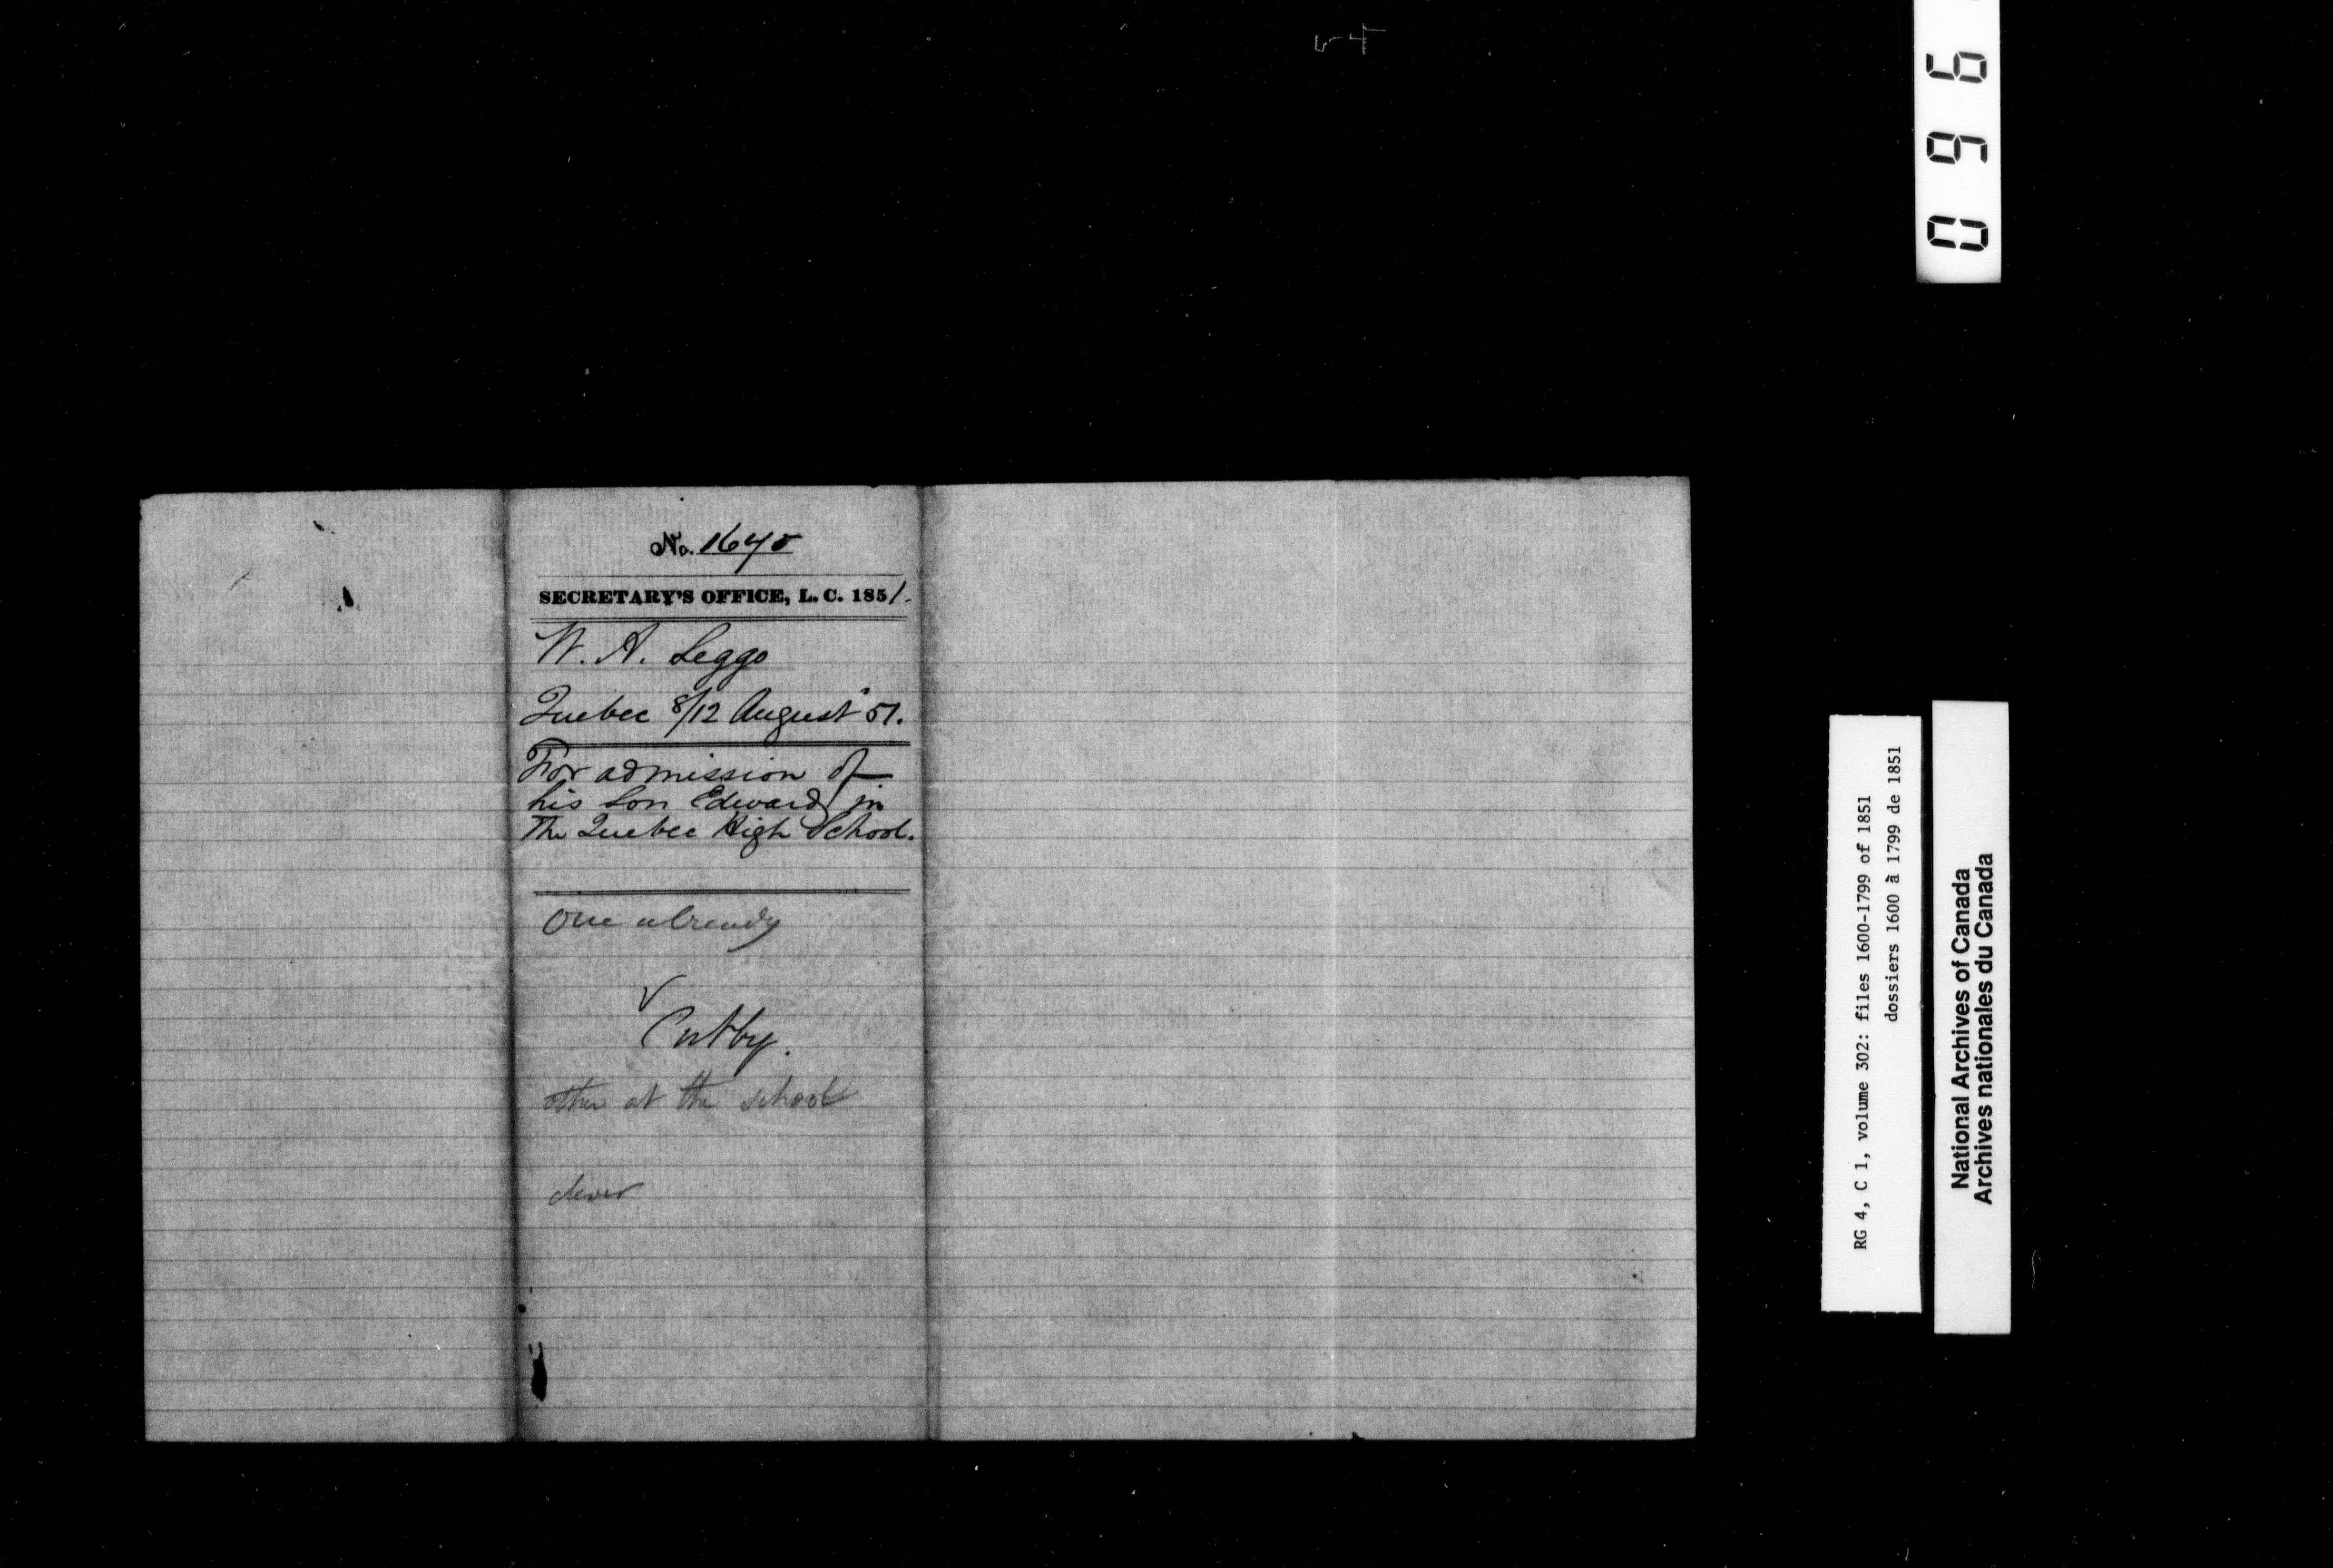 54
096
No. 1645
SECRETARY'S OFFICE, L. C. 1851.
W. A. Leggo
Quebec 8/12 August 51.
For admission of
his Son Edward in
The Quebec High School.
One already
other at the school
clever
RG 4, C 1, volume 302: files 1600-1799 of 1851
dossiers 1600 à 1799 de 1851
National Archives of Canada
Archives nationales du Canada